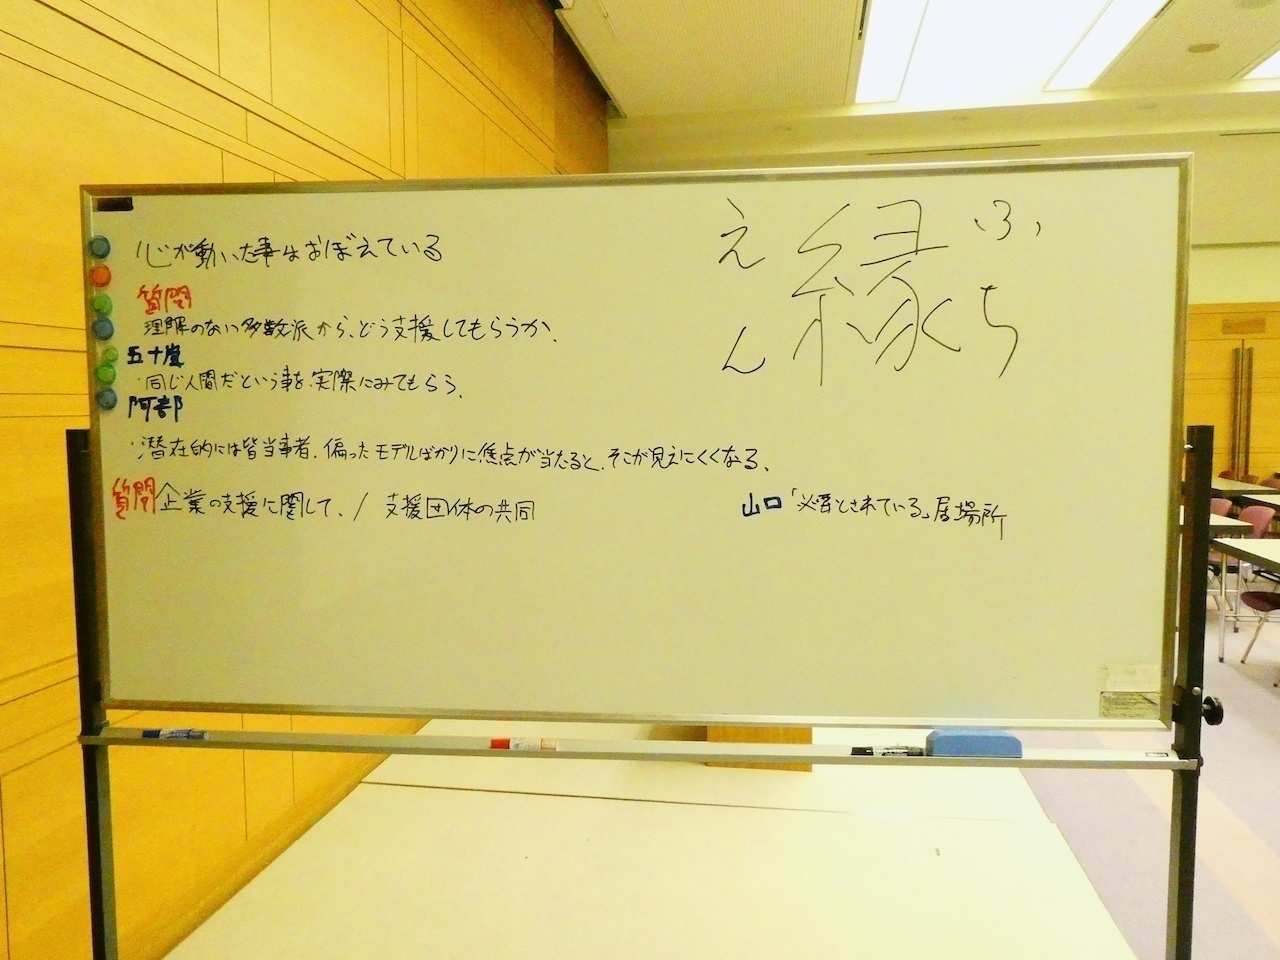 心が動いた事はおぼえている
えん 縁 ふち
質問
理解のない多数派から、どう支援してもらうか、
五十嵐
・同じ人間だという事を、実際にみてもらう、
阿部
・潜在的には皆当事者、偏ったモデルばかりに焦点が当たると、そこが見えにくくなる、
質問 企業の支援に関して、/ 支援団体の共同
山口「必要とされている」居場所